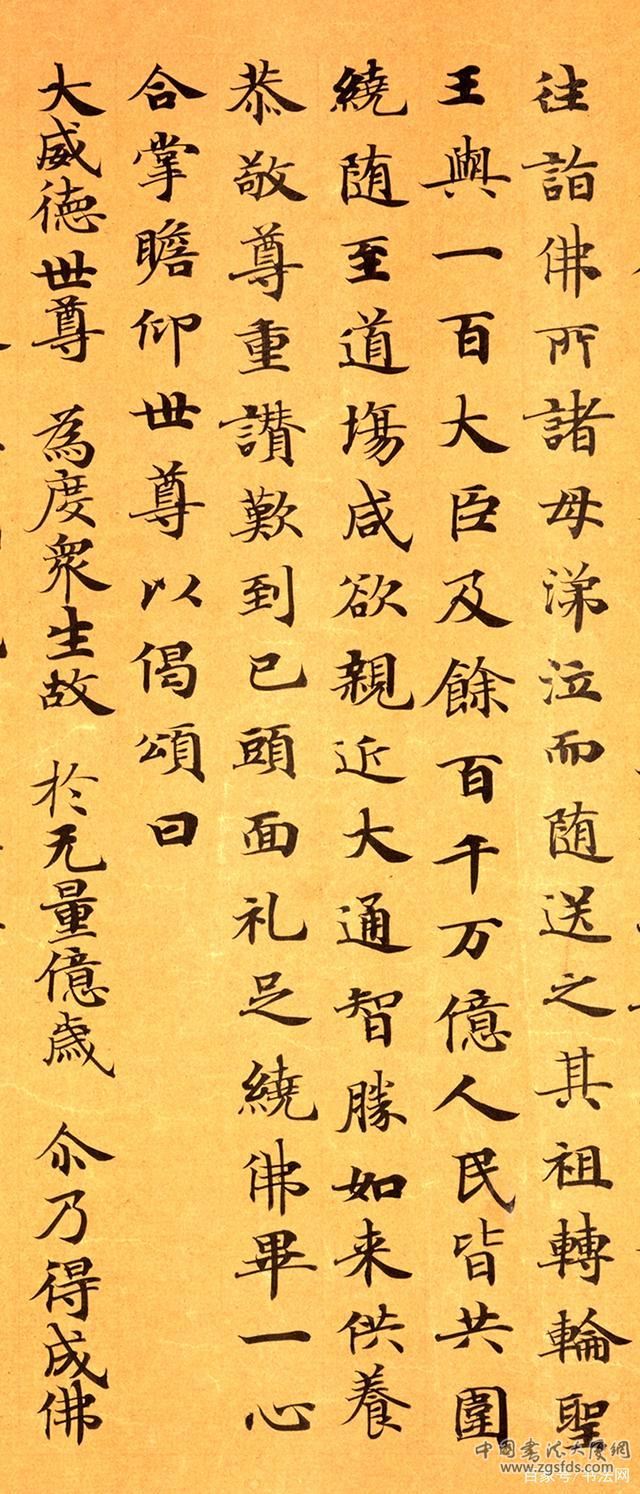 往詣佛所諸母涕泣而随送之其祖轉輪聖
王與一百大臣及餘百千万億人民皆共圍
繞随至道場咸欲親近大通智勝如来供養
恭敬尊重讃歎到已頭面礼足繞佛畢一心
合掌瞻仰世尊以偈頌曰
大威德世尊　為度衆生故　於无量億歳　尒乃得成佛
中国书法大厦网
www.zgsfds.com
百家号/书法网